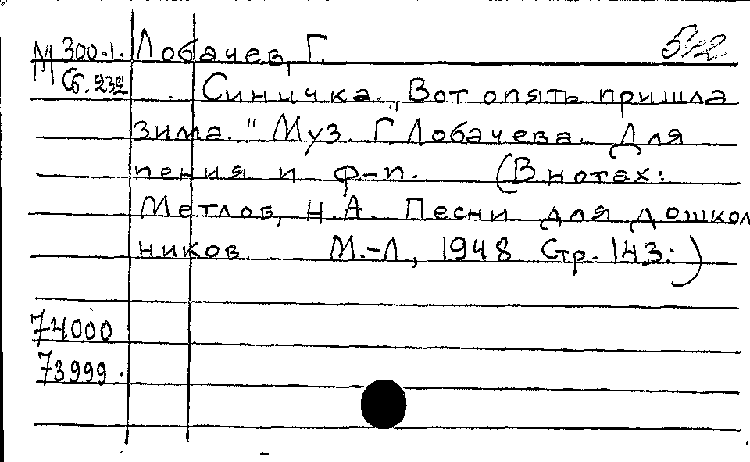 М 300-1. Лобачев, Г.
Сб. 232 Синичка. „Вот опять пришла
зима." Муз. Г. Лобачева. Для
пения и ф-п. (В нотах:
Метлов, Н.А. Песни для дошколь
ников М.-Л., 1948 Стр. 143:)
74000
73999.